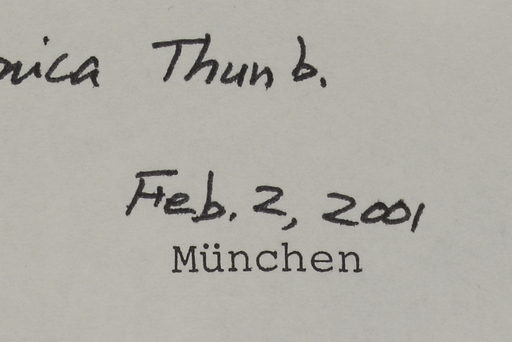 Thunb.
Feb. 2, 2001
München